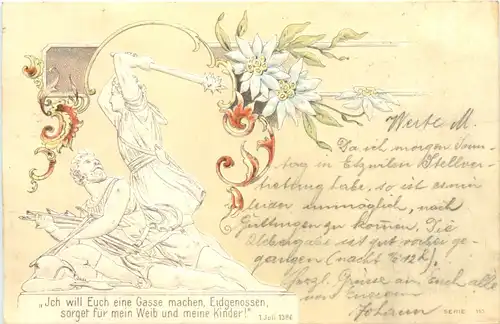 Werte M.
Da ich morgen Sonn-
tag in Etzwilen Stellver-
tretung habe, so ist es mir
leider unmöglich, nach
zu kommen. Die
ist gut vorbei ge-
gangen (nachts 12 h.)
Herzl. Grüsse an Euch alle
von Eurem
Johann
„Ich will Euch eine Gasse machen, Eidgenossen,
sorget für mein Weib und meine Kinder!"
SERIE